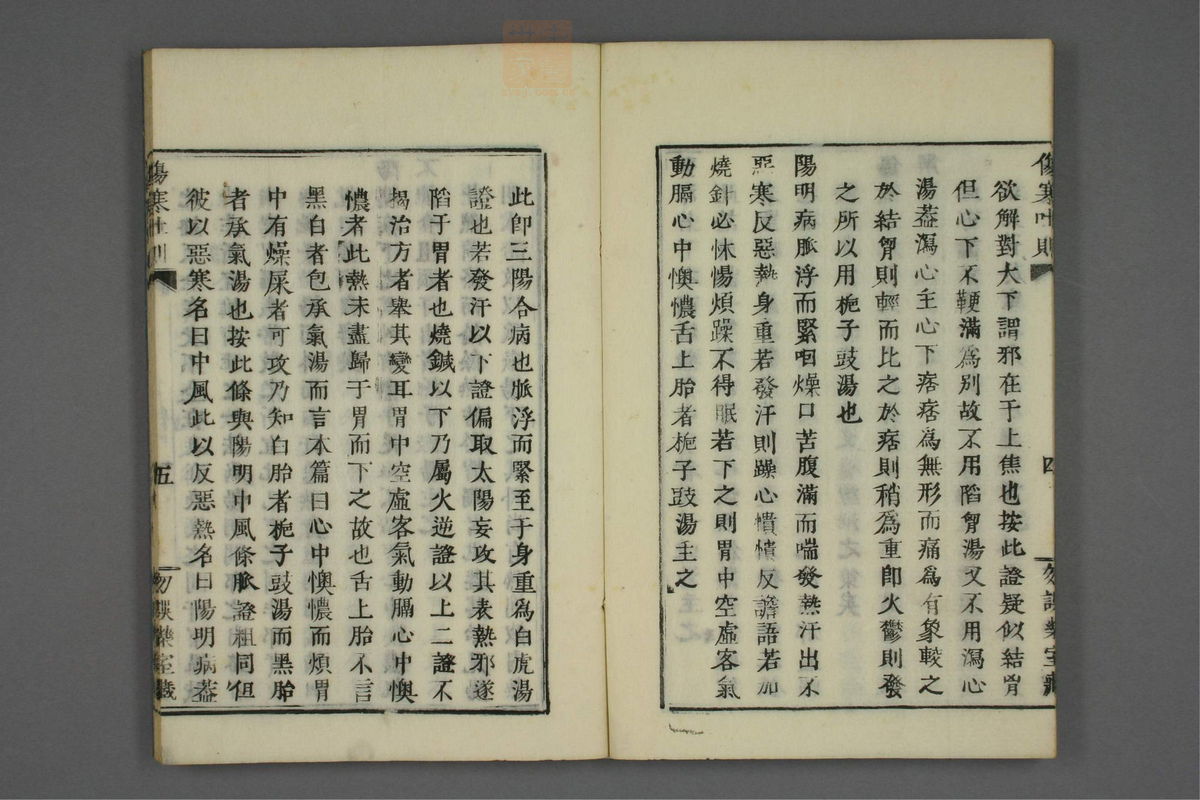 傷寒吐則
四
欲解對大下謂邪在于上焦也按此證疑似結胷
但心下不鞕滿爲別故不用陷胷湯又不用瀉心
湯葢瀉心主心下痞痞爲無形而痛爲有象較之
於結胷則輕而比之於痞則稍爲重卽火鬱則發
之所以用梔子豉湯也
陽明病脈浮而緊咽燥口苦腹滿而喘發熱汗出不
惡寒反惡熱身重若發汗則躁心憒憒反譫語若加
燒針必怵惕煩躁不得眠若下之則胃中空虛客氣
動膈心中懊憹舌上胎者梔子豉湯主之
此卽三陽合病也脈浮而緊至于身重爲白虎湯
證也若發汗以下證偏取太陽妄攻其表熱邪遂
陷于胃者也燒鍼以下乃屬火逆證以上二證不
揭治方者舉其變耳胃中空虛客氣動膈心中懊
憹者此熱未盡歸于胃而下之故也舌上胎不言
黑白者包承氣湯而言本篇曰心中懊憹而煩胃
中有燥屎者可攻乃知白胎者梔子豉湯而黑胎
者承氣湯也按此條與陽明中風條脈證粗同但
彼以惡寒名曰中風此以反惡熱名曰陽明病葢
傷寒吐則
五